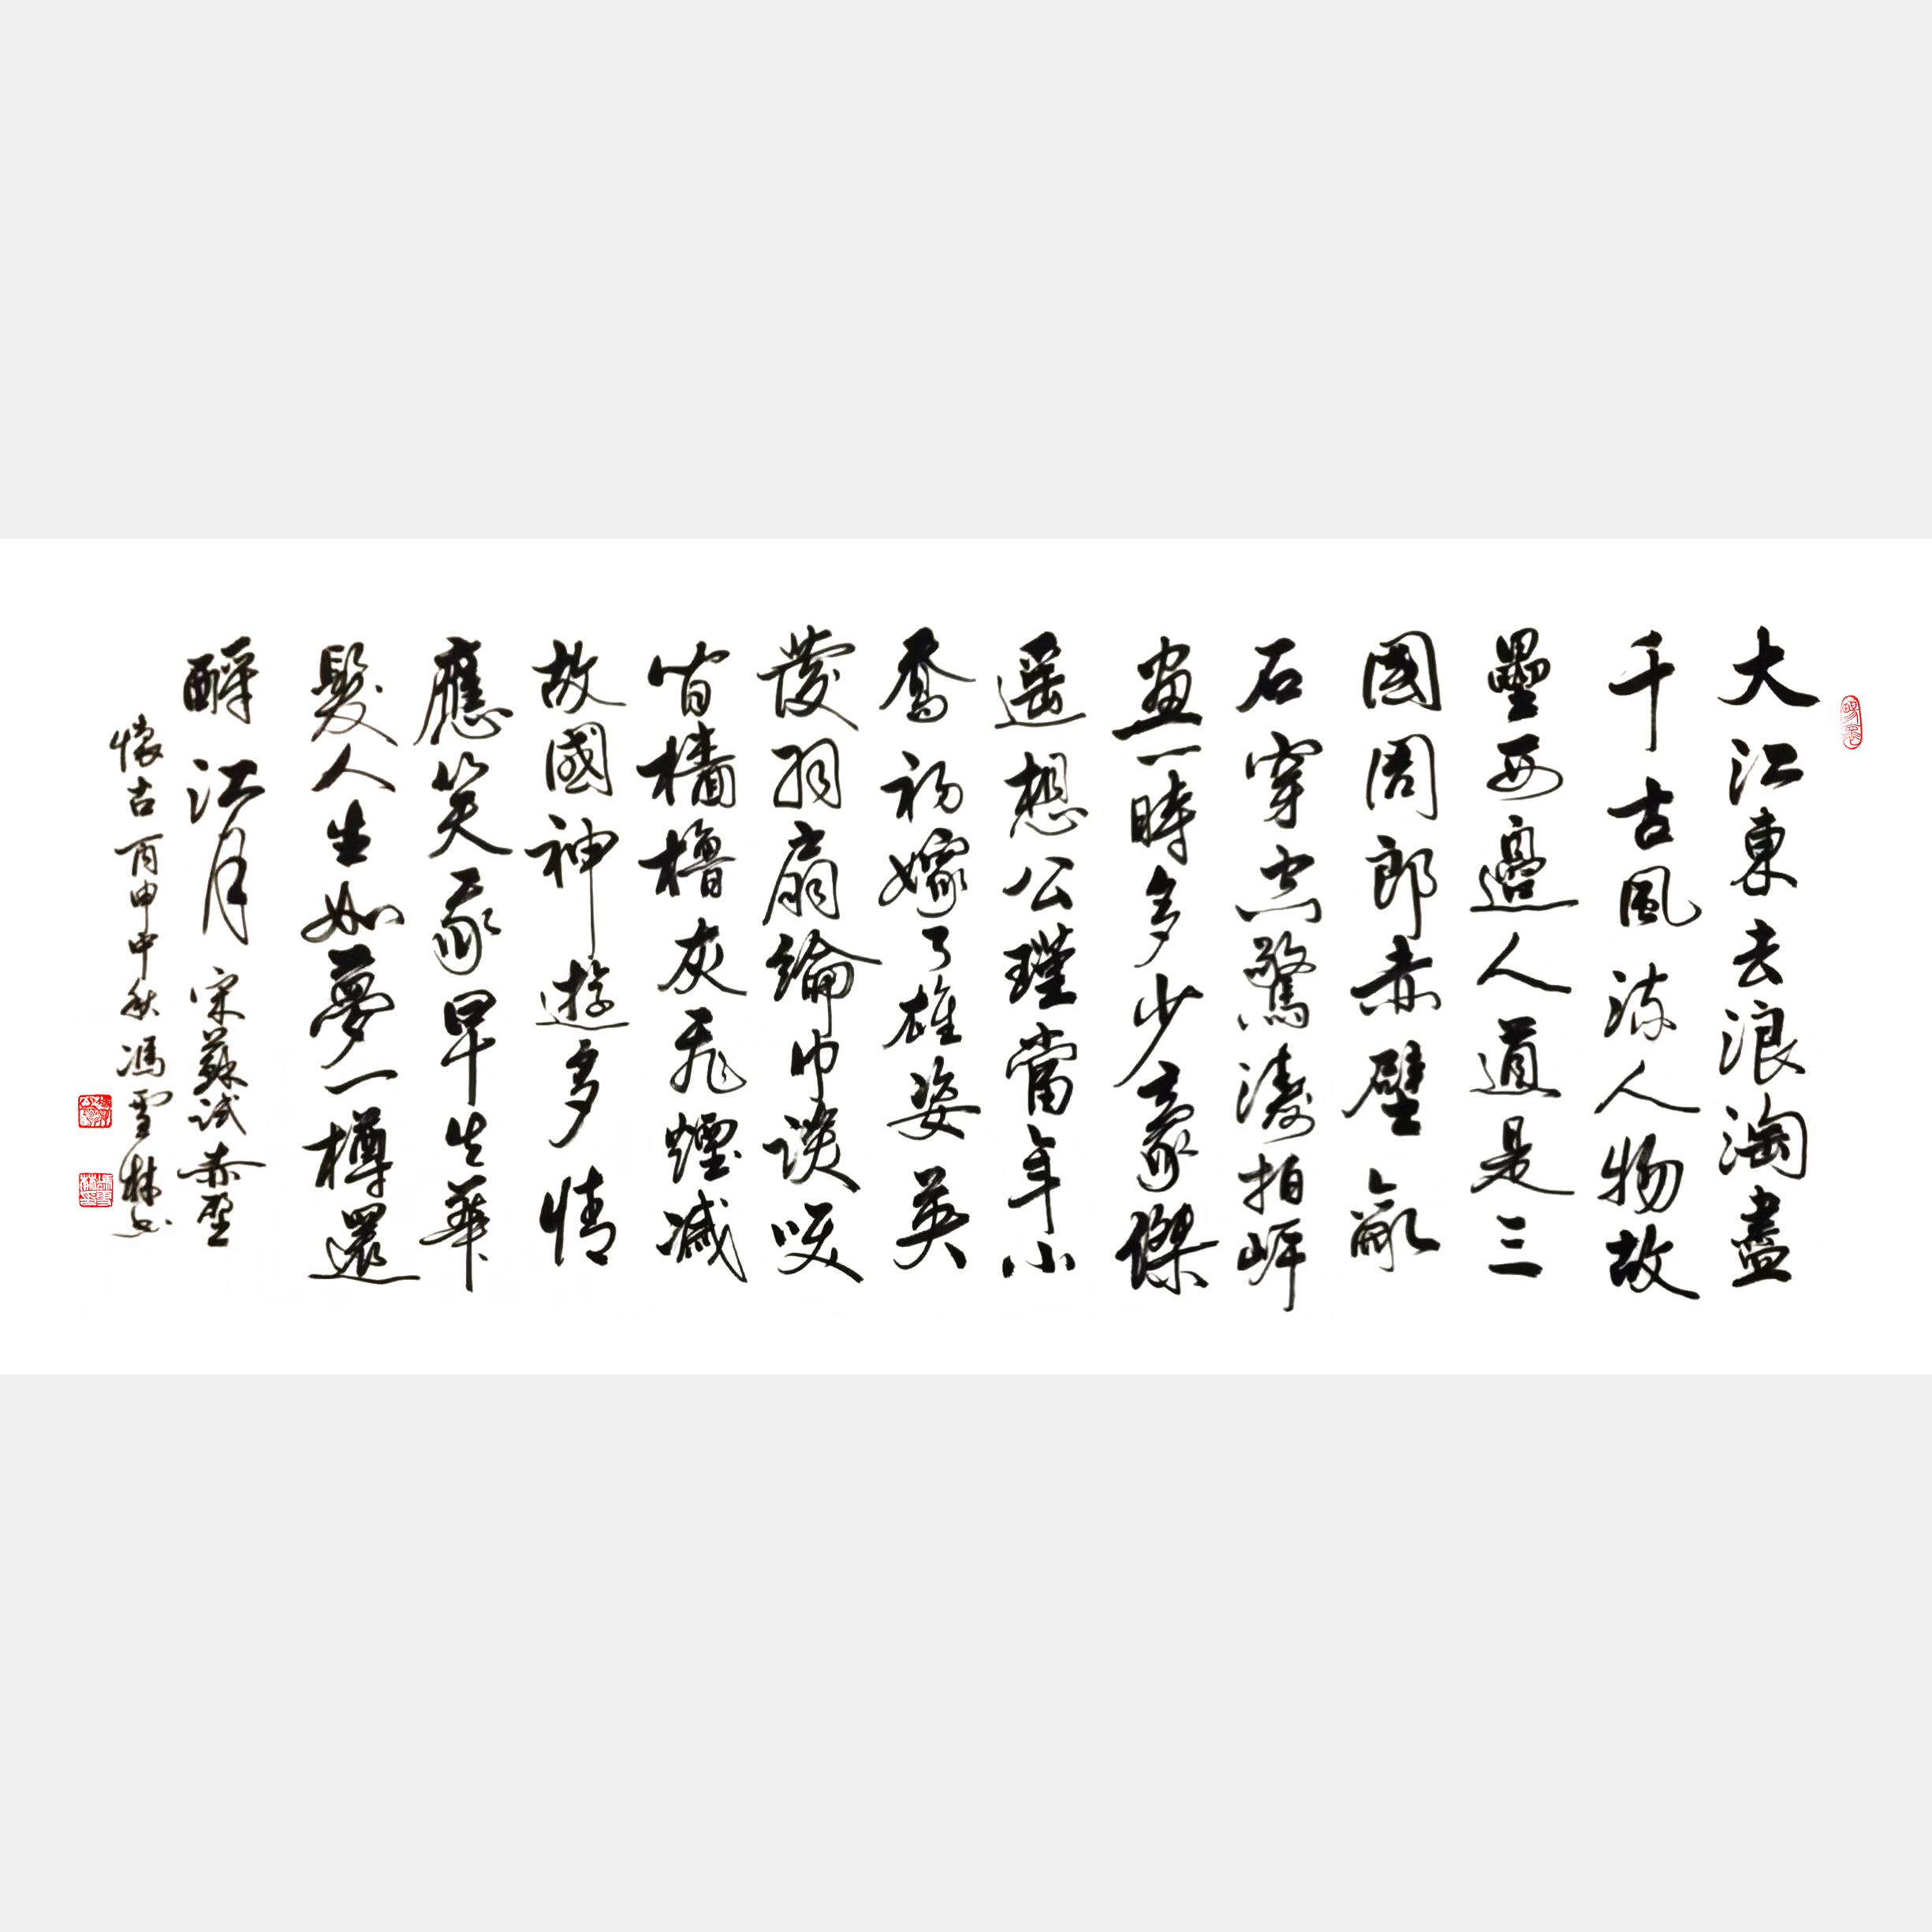 大江東去浪淘盡
千古風流人物故
壘西邊人道是三
國周郎赤壁亂
石穿空驚濤拍岸
畫一時多少豪傑
遥想公瑾當年小
喬初嫁了雄姿英
發羽扇綸巾談咲
間檣櫓灰飛煙滅
故國神遊多情
應笑我早生華
髮人生如夢一樽還
酹江月 宋蘇試赤壁
懷古丙申中秋馮雪林书